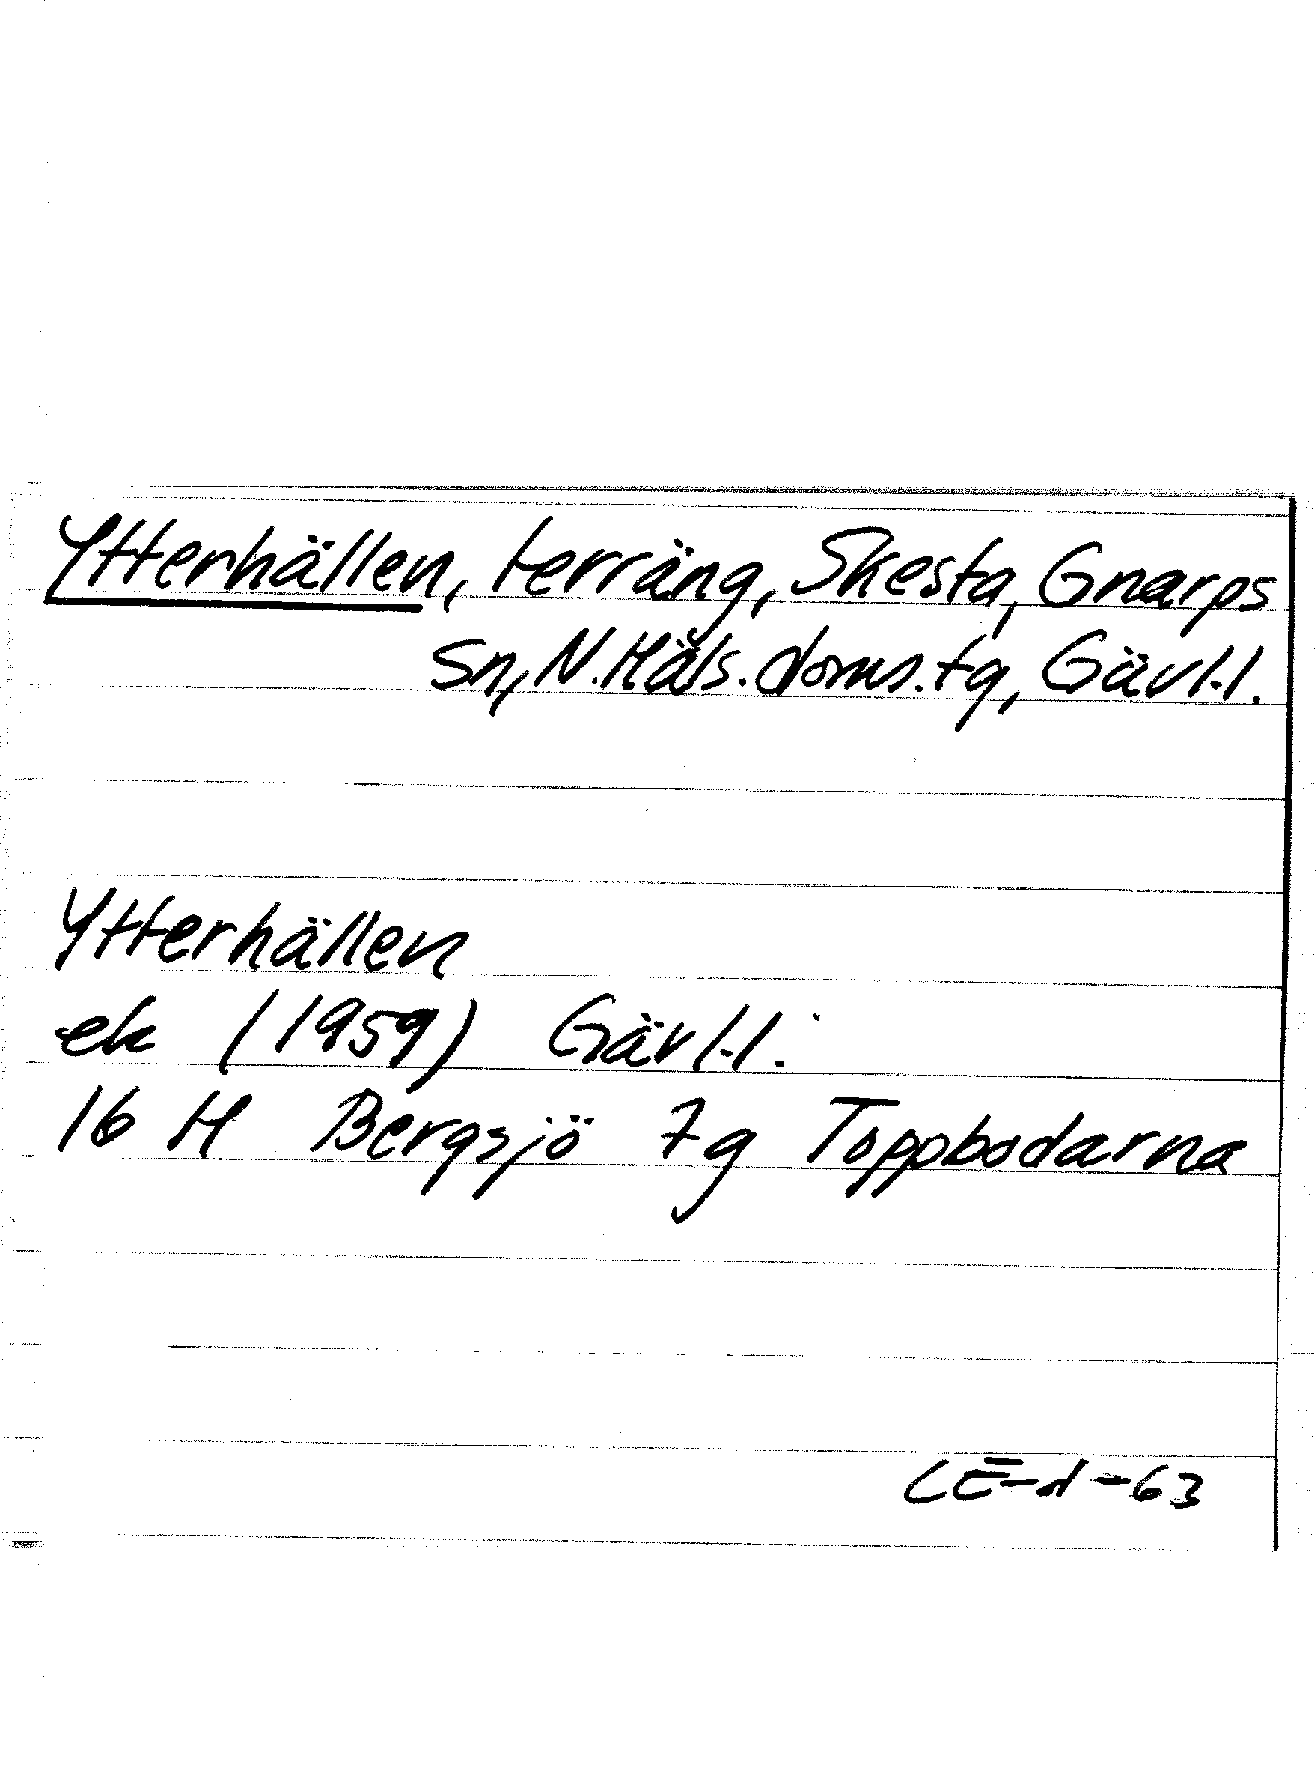 Ytterhällen, terräng, Skesta, Gnarps
Sn, N. Häls. doms. tg, Gävl.l.
Ytterhällen
ek (1959) Gävl.l.
16 H Bergsjö 7g Toppbodarna
CE-d -63